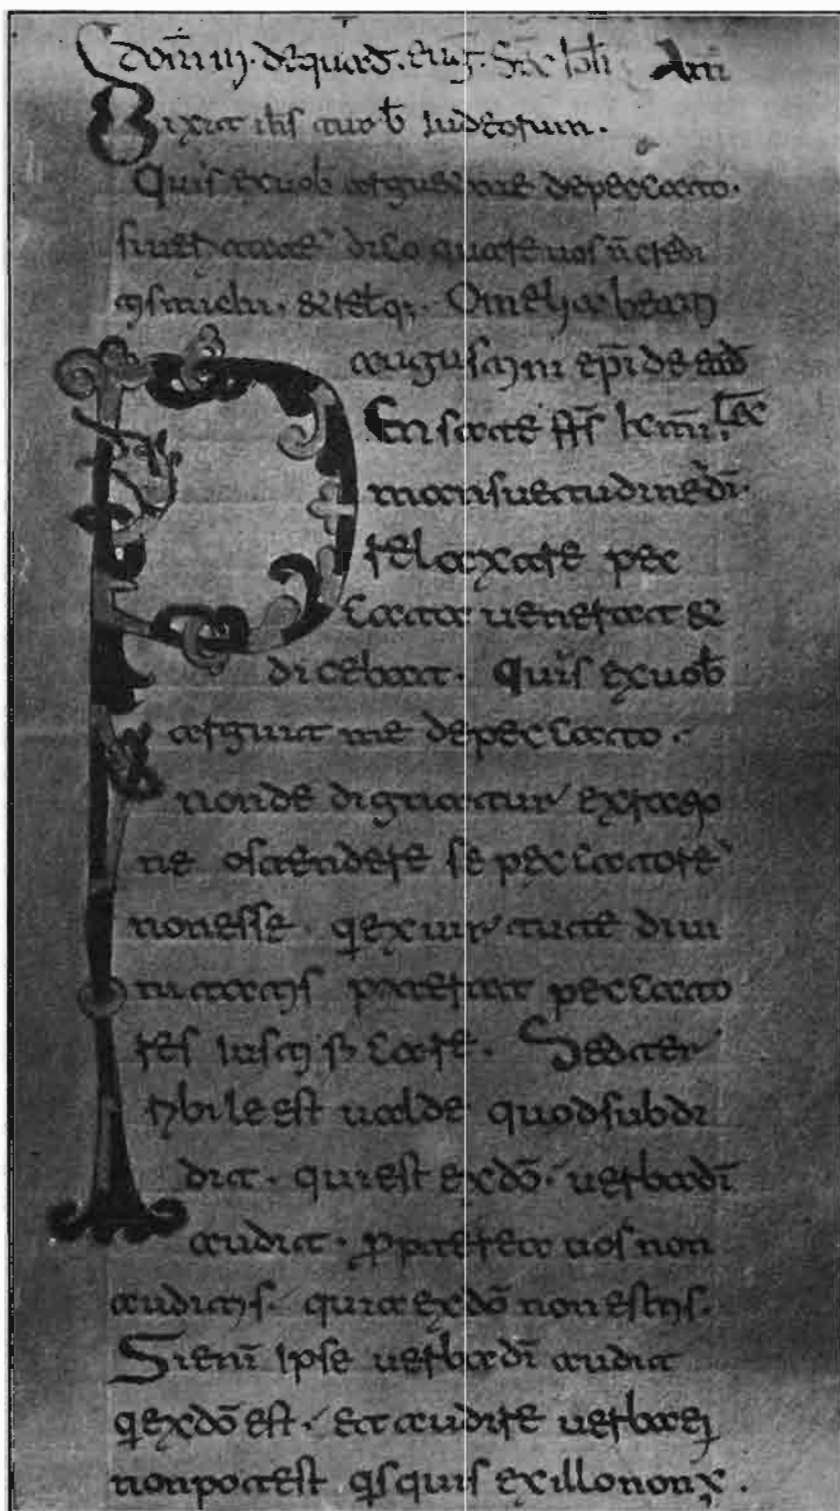 dom̄ de quad̄. euḡ. sc̄d ioh̄
Dixit ih̄s turb̄ iudeorum.
Quis ex uob̄ arguet me de peccato.
si ueritatē dico quare uos n̄ credi
tis michi. & rel̄q;. Omelia beati
augustini ep̄i de ead̄
Pensate fr̄s kmi,
mansuetudinē dī.
relaxare pec
cata uenerat &
dicebat. Quis ex uob̄
arguit me de peccato.
non dedignatur ex ratio
ne ostendere se peccatorē
non esse. q̄ ex uirtute diui
nitatis poterat peccato
res iustificare. Sed ter
ribile est ualde quod subdi
dit. qui est ex dō. uerba dī
audit. ꝓpterea uos non
auditis. quia ex dō non estis.
Si enī ipse uerba dī audit
q̄ ex dō est. et audire uerba ei
non potest q̄squis ex illo non ē.